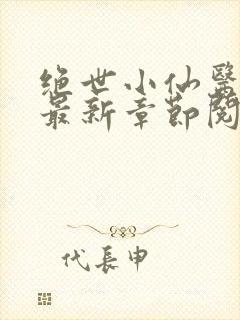 绝世小仙醫
最新章節閱
代長申